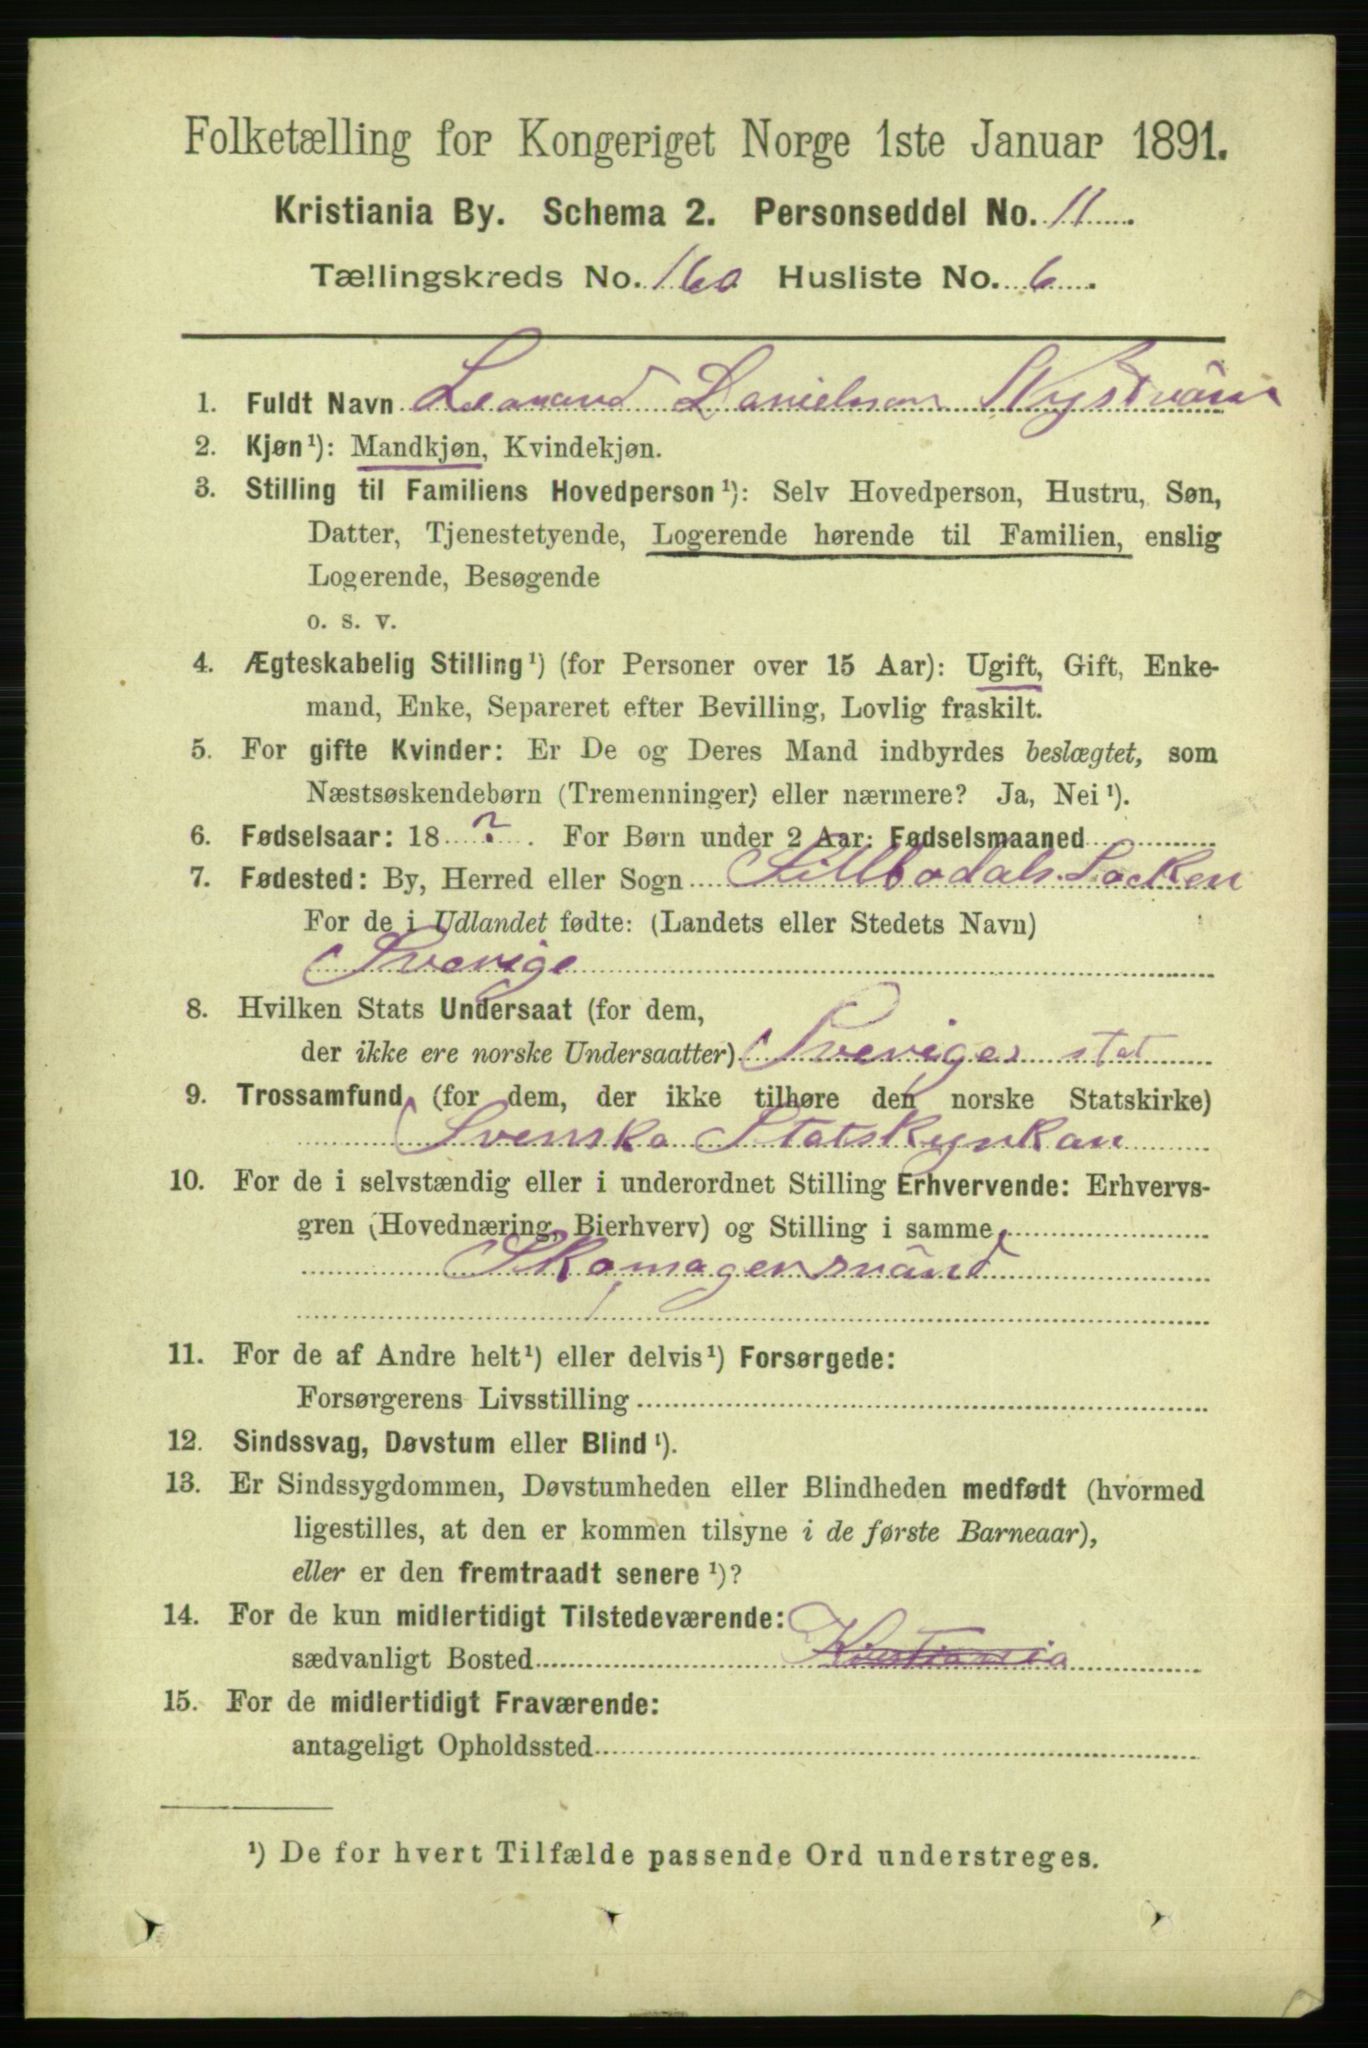 Folketælling for Kongeriget Norge 1ste Januar 1891.
Kristiania By. Schema 2. Personseddel No. 11.
Tællingskreds No. 160 Husliste No. 6.
1. Fuldt Navn Leonard Danielson Nyström
2. Kjøn¹): Mandkjøn, Kvindekjøn.
3. Stilling til Familiens Hovedperson¹): Selv Hovedperson, Hustru, Søn,
Datter, Tjenestetyende, Logerende hørende til Familien, enslig
Logerende, Besøgende
o. s. v.
4. Ægteskabelig Stilling¹) (for Personer over 15 Aar): Ugift, Gift, Enke-
mand, Enke, Separeret efter Bevilling, Lovlig fraskilt.
5. For gifte Kvinder: Er De og Deres Mand indbyrdes beslægtet, som
Næstsøskendebørn (Tremenninger) eller nærmere? Ja, Nei¹).
6. Fødselsaar: 18 ? . For Børn under 2 Aar: Fødselsmaaned
7. Fødested: By, Herred eller Sogn Sillbodals Socken
For de i Udlandet fødte: (Landets eller Stedets Navn)
Sverige
8. Hvilken Stats Undersaat (for dem,
der ikke ere norske Undersaatter) Sveriges stat
9. Trossamfund (for dem, der ikke tilhøre den norske Statskirke)
Svenska Statskyrkan
10. For de i selvstændig eller i underordnet Stilling Erhvervende: Erhvervs-
gren (Hovednæring, Bierhverv) og Stilling i samme
Skomagersvänd
11. For de af Andre helt¹) eller delvis¹) Forsørgede:
Forsørgerens Livsstilling
12. Sindssvag, Døvstum eller Blind¹).
13. Er Sindssygdommen, Døvstumheden eller Blindheden medfødt (hvormed
ligestilles, at den er kommen tilsyne i de første Barneaar),
eller er den fremtraadt senere¹)?
14. For de kun midlertidigt Tilstedeværende:
sædvanligt Bosted Kristiania
15. For de midlertidigt Fraværende:
antageligt Opholdssted
¹) De for hvert Tilfælde passende Ord understreges.